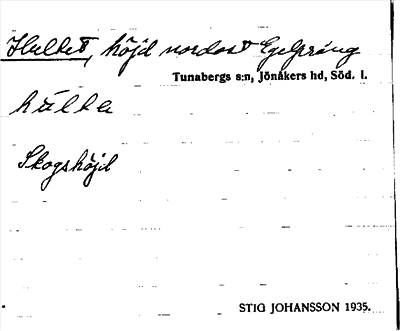 Hultet, höjd nordost Egelsräng
Tunabergs s:n, Jönåkers hd, Söd. l.
hulta
Skogshöjd
STIG JOHANSSON 1935.